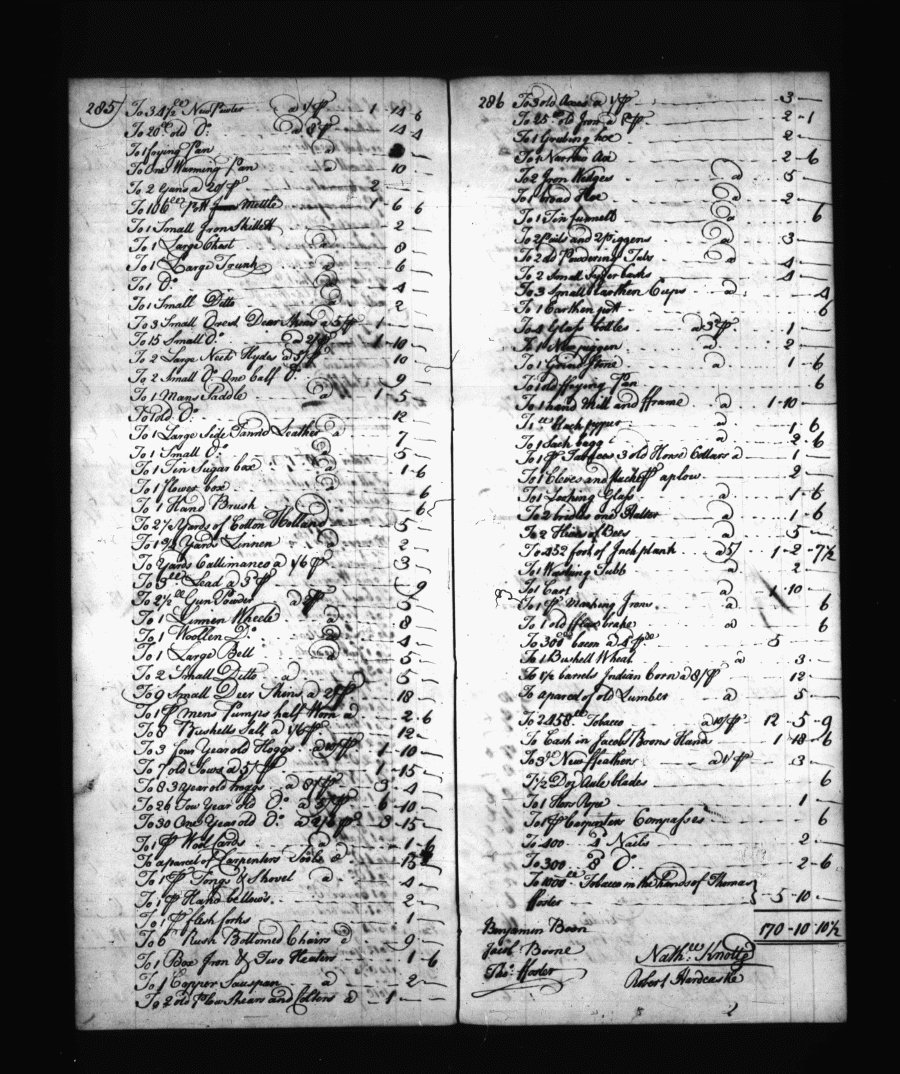 285
To 34½ lb New Pewter a 1/ P 1 - 14 - 6
To 20 lb old Do. a 8d P 14 - 4
To 1 frying Pan a
To One Warming Pan a 10
To 2 Guns a 20/ P 2
To 106 lb Mettle 1 - 6 - 6
To 1 Small Iron Skillett 2
To 1 Large Chest a 8
To 1 Large Trunk a 6
To 1 Do. 4
To 1 Small Ditto 2
To 3 Small Drest Dear Skins a 5/ P 1
To 15 Small Do. a 2/ P 1 - 10
To 2 Large Neet Hydes a 5/ P 10
To 2 Small Do. One half Do. 9
To 1 Mans Saddle a 1 - 5
To 1 old Do. 12
To 1 Large Side Tann'd Leather a 7
To 1 Small Do. 5
To 1 Tin Sugar box 1 - 6
To 1 flower box 6
To 1 Hand Brush 6
To 2½ Yards of Cotton Holland 5
To 1¾ Yards Linnen 2
To 2 yards Callimanco a 1/6 P 3
To 3 lb Lead a 3d P 9
To 2½ lb Gun Powder a P 5
To 1 Linnen Wheele 8
To 1 Woollen Do. 4
To 1 Large Bell 5
To 2 Small Ditto a 5
To 9 Small Deer Skins a 2/ P 18
To 1 P mens Pumps half Worn a 2 - 6
To 8 Bushells Salt a 1/6 P 12
To 3 four Year old Hoggs a 10/ P 1 - 10
To 7 old Sows a 5/ P 1 - 15
To 8 3 year old hoggs a 8/ P 3 - 4
To 26 Tow Year old Do. a 5/ P 6 - 10
To 30 One Year old Do. a 2/6 P 3 - 15
To 1 P Wool Cards 1 - 6
To a parcel of Carpenters Tools a
To 1 P Tongs & Shovel a 4
To 1 P Hand bellows 2
To 1 P flesh forks 1
To 6 Rush Bottomed Chairs a 9
To 1 Box Iron & Two Heaters 1 - 6
To 1 Copper Sauspan a 2
To 2 old Plow Shears and Colters a 1
286
To 3 old Axes a 1/ P 3
To 25 lb old Iron a P 2 - 1
To 1 Grubing hoe 2
To 1 Narrow Axe 2 - 6
To 2 Iron Wedges a 5
To 1 broad Hoe a 2
To 1 Tin funnell a 6
To 2 Pails and 2 Piggens a 3
To 2 old Powdering Tubs a 4
To 2 Small Syder Casks 4
To 3 Small Earthen Cups a 4
To 1 Earthen pott 6
To 4 Glass bottles a 3d P 1
To 1 New piggen a 2
To 1 Grind Stone a 1 - 6
To 1 old ffrying Pan 6
To 1 hand Mill and fframe a 1 - 10
To 1 lb black pepper a 1 - 6
To 1 Sack bagg a 2 - 6
To 1 P Traces 3 old Horse Collars a 1
To 1 Cleves and a plow 2
To 1 Looking Glass a 1 - 6
To 2 bridles one Halter 1 - 6
To 2 Hives of Bees 5
To 452 foot of Inch plank a 5/ 1 - 2 - 7½
To 1 Washing Tubb a 2
To 1 Cart a 1 - 10
To 1 P Marking Irons a 6
To 1 old fflax brake a 6
To 300 lb bacon a 4d P 5
To 1 Bushell Wheat a 3
To 1½ barrels Indian Corn a 8/ P 12
To a parcel of old Lumber a 5
To 2458 lb Tobacco a 10/ P 12 - 5 - 9
To Cash in Jacob Boons Hand 1 - 18 - 6
To 3 lb New ffeathers a 1/ P 3
To ½ Doz Awle blades 6
To 1 Hors Rope 1
To 1 P Carpenters Compasses 6
To 400 4d Nails 2
To 300 8d Do. 2 - 6
To 1000 lb Tobacco in the hands of Thomas
ffoster } 5 - 10
170 - 10 - 10½
Benjamin Boon
Jacob Boone
Tho. ffoster
Nath. ll Knotts
Robert Hardcastle